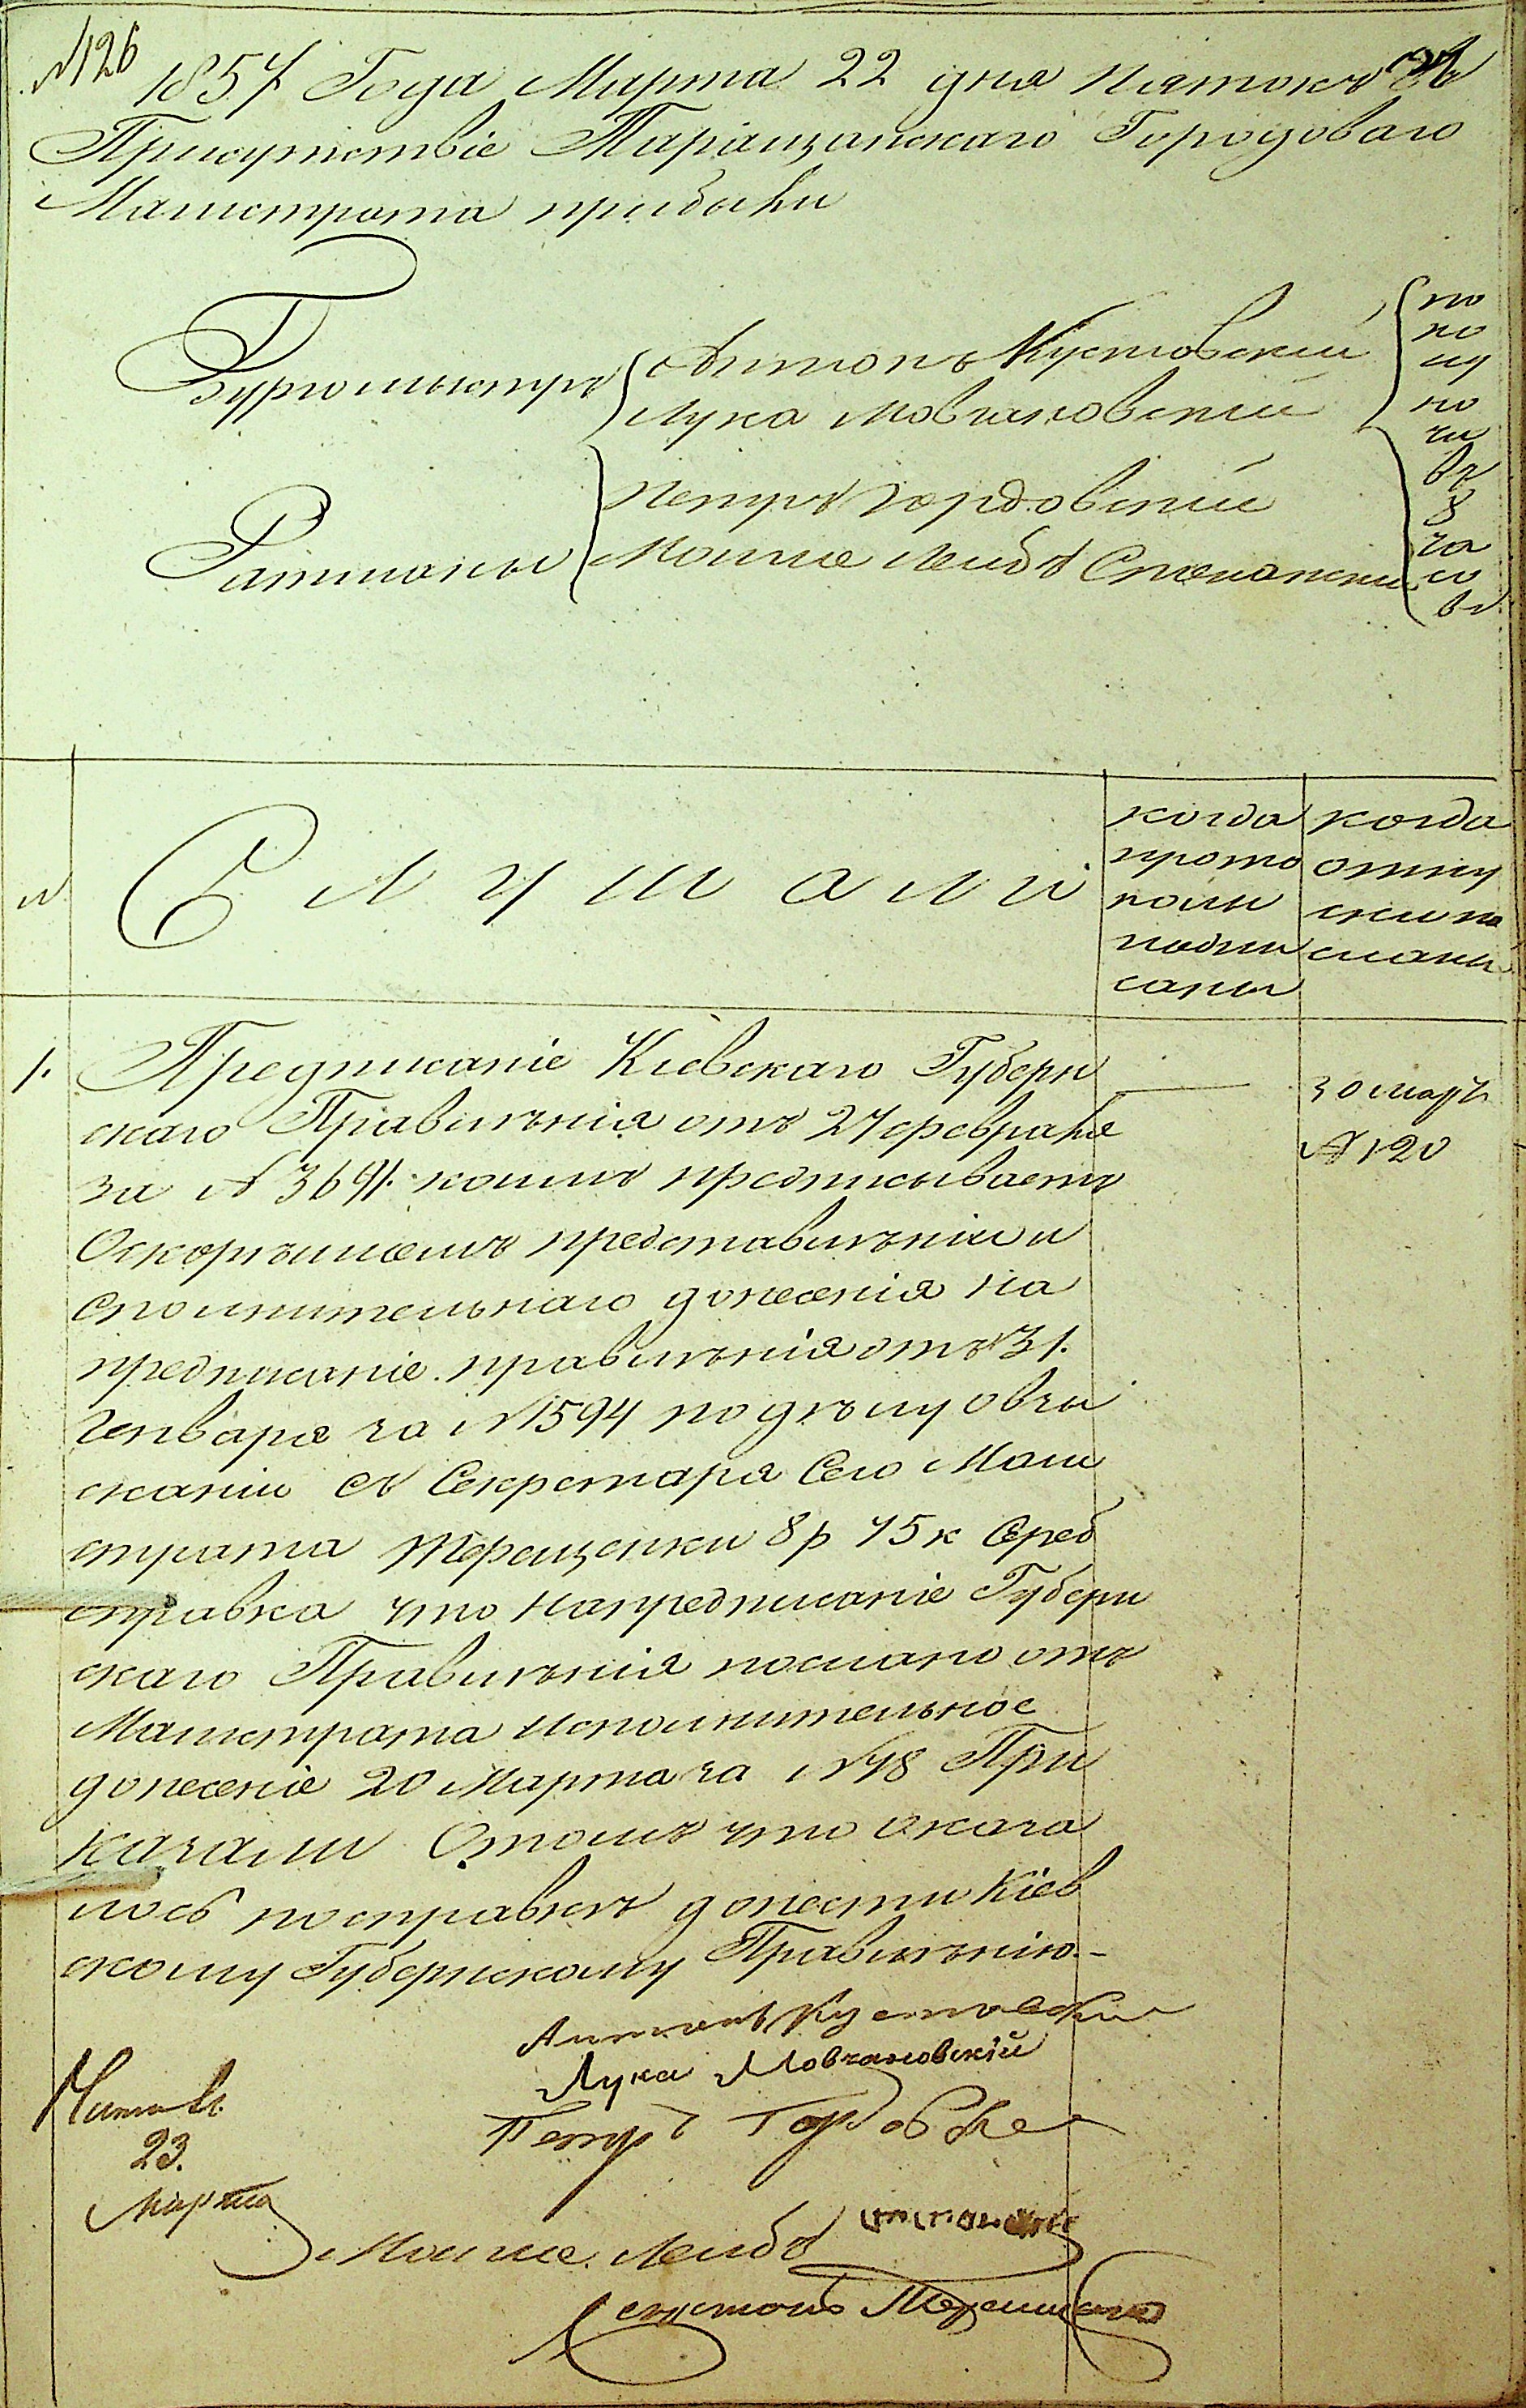 №126
1857 Года Марта 22 дня пятокъ въ
Присутствіе Таращанскаго Городоваго
Магистрата прибыли
Бургомыстръ
Антонъ Кустовскій
Лука Мовчановскій
Ратманы
Петръ Гордовскій
Мошие Лейбъ
по
по
лу
но
чи
въ
8
ча
со
въ
№
Слушали
когда
прото
колы
подпи
саны
когда
отпу
ски по
сланы
1.
Предписаніе Кіевскаго Губерн
скаго Правленія отъ 27 февраля
за № 3691. коимъ предписываетъ
О скорѣишемъ представленіи и
сполнительнаго донесенія на
предписаніе правленія отъ 31.
Генваря за №1594 по дѣлу о взы
сканіи съ Секретаря Сего Маги
страта Терещенки 8 р 75 к Сереб
справка что на предписаніе Губерн
скаго Правленія послано отъ
Магистрата исполнительное
донесеніе 20 Марта за №78 При
казали О томъ что оказа
лось по справкѣ донести Кіев
скому Губернскому Правленію.-
30 мар
№120
Антонъ Кустовскій
Лука Мовчановскій
Петръ
23.
Марта
Мошие Лейбъ